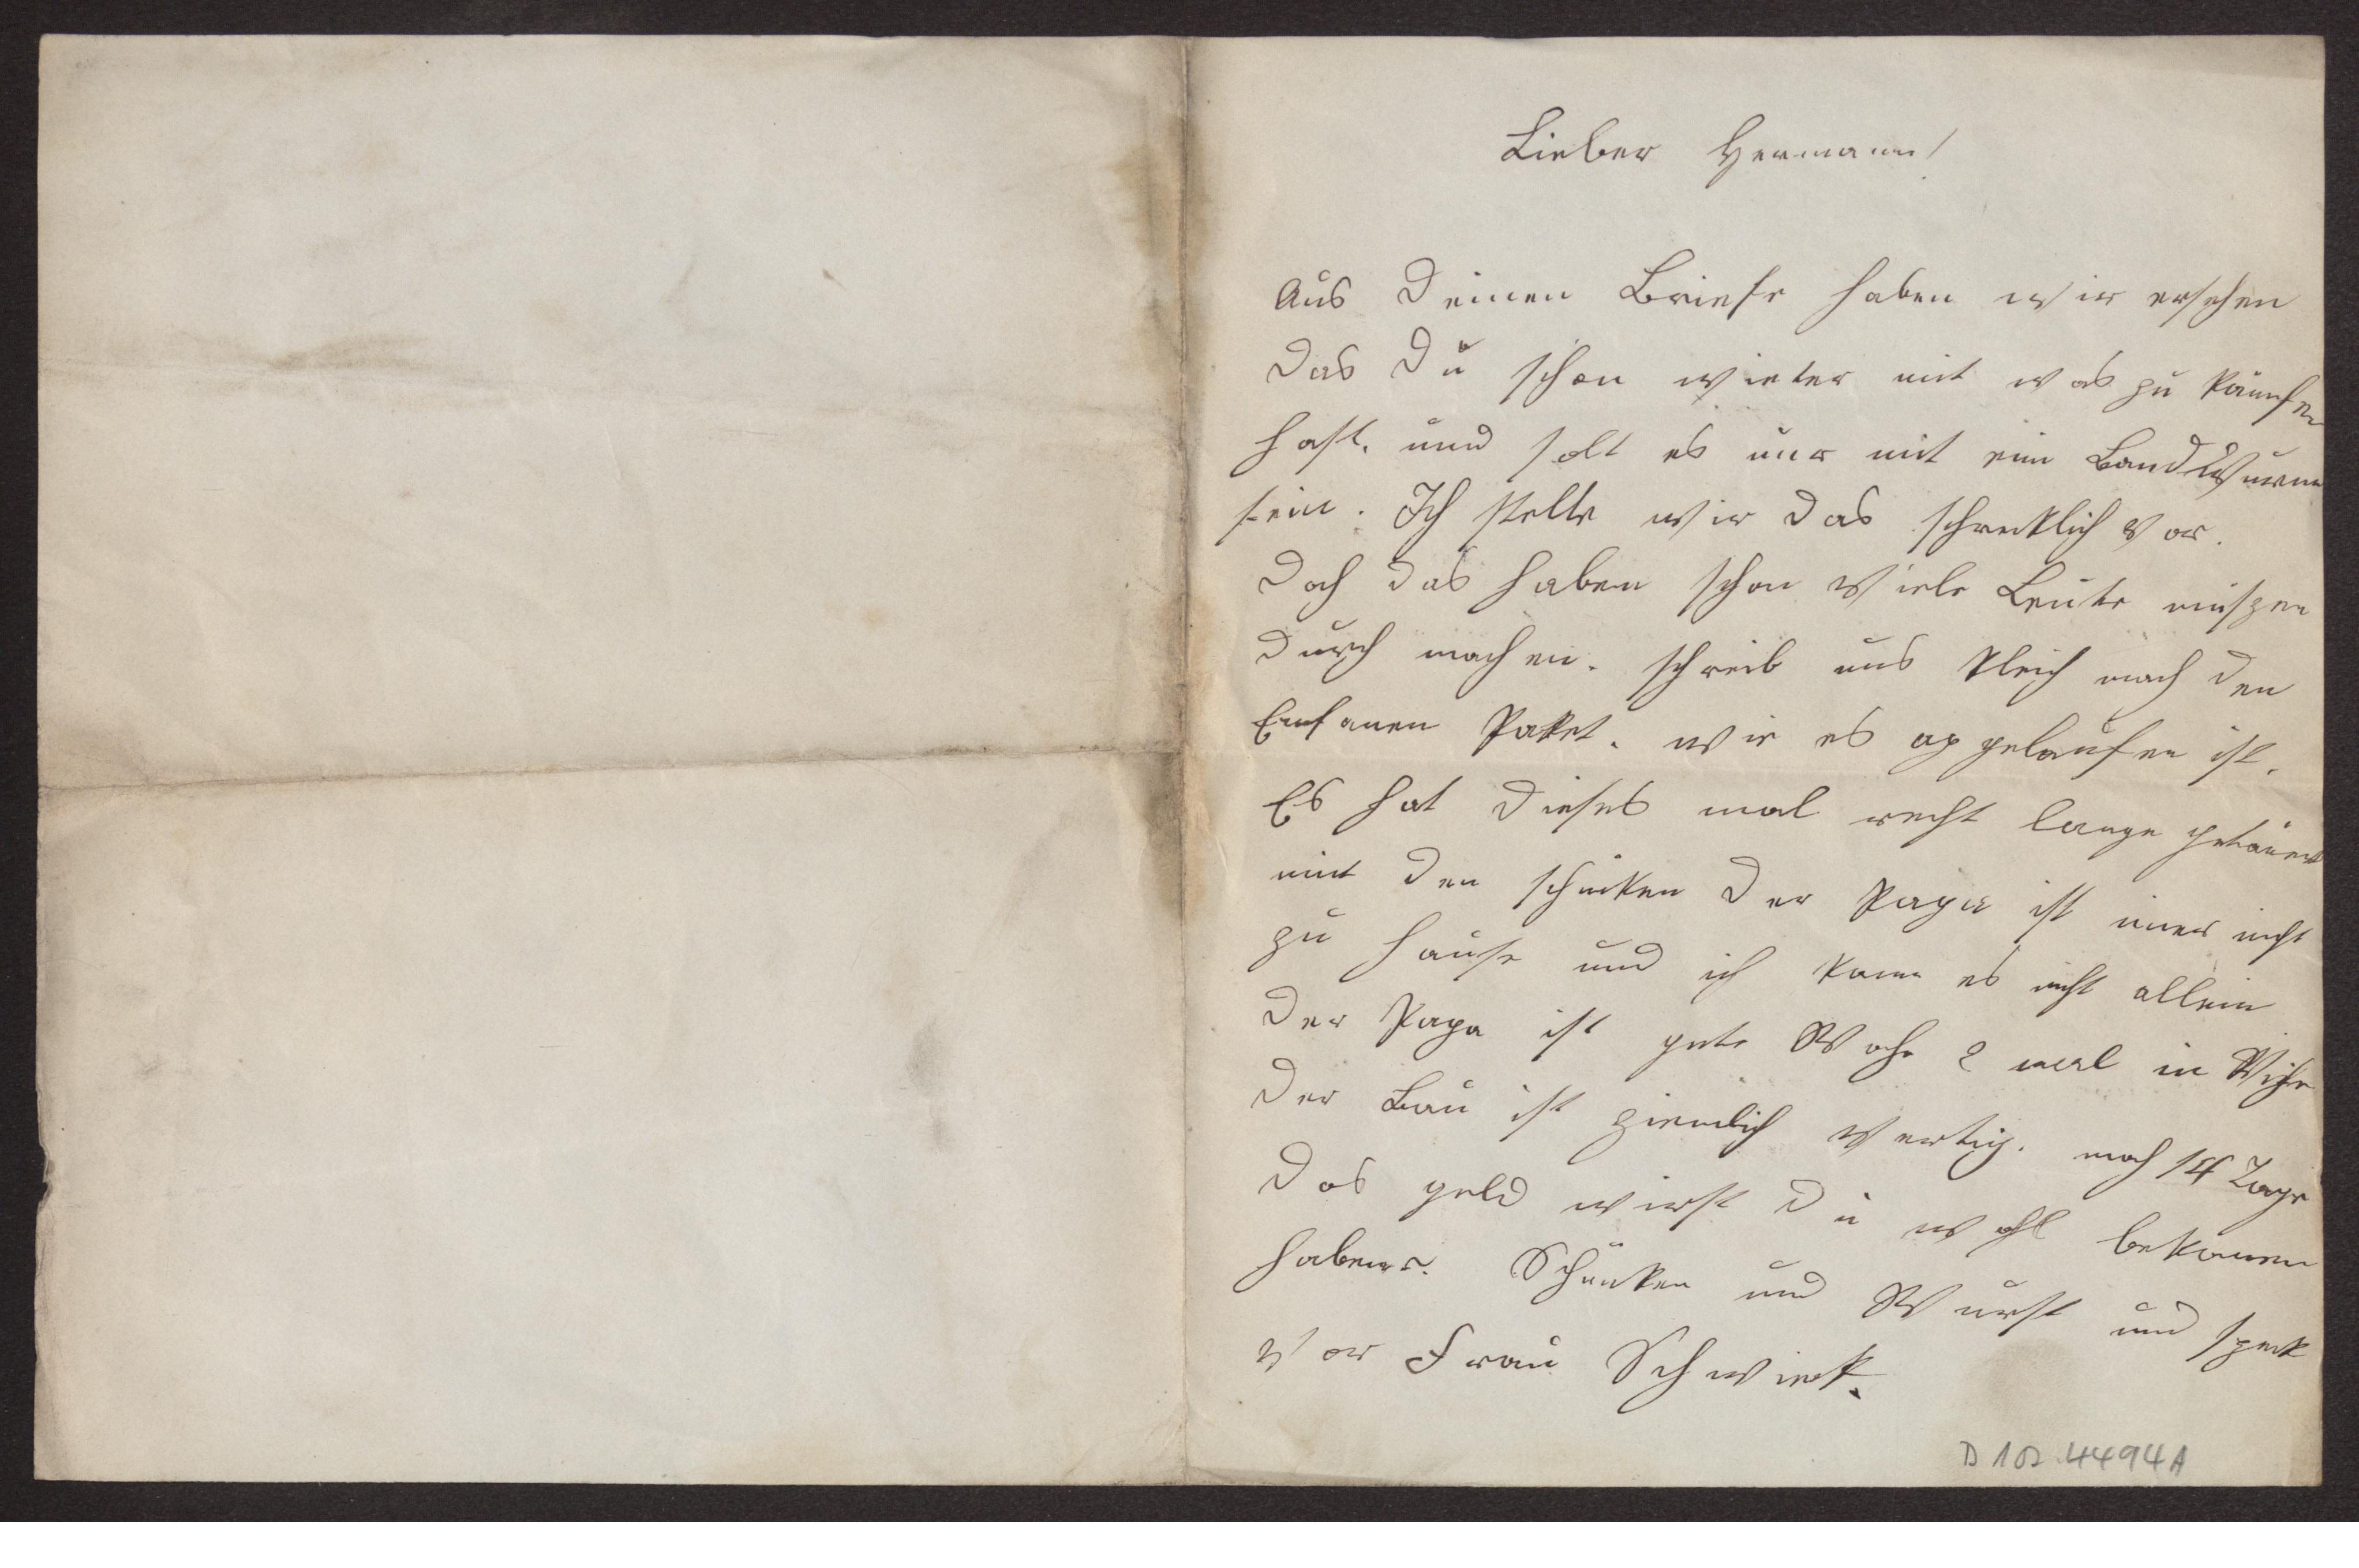 Lieber Hermann!
Aus Deinen Briefe haben wir ersehen
Das Du schon wieter mit was zu kämfen
hast. und solt es nur mit ein BandWurm
sein. Ich stelle mir das schrecklich vor.
Doch das haben schon Viele Leute müszen
Durch machen. schreib uns kleich nach den
Emfanen Paket. wie es apgelaufen ist.
Es hat Dieses mal recht lange getauert
mit den schicken Der Papa ist imer nicht
zu hause und ich kann es nicht allein
Der Papa ist gete Woche 2 mal in
Der Bau ist ziemlich Vertig. noch 14 Tage
Das geld wirst Du wohl bekomen
haben. Schinken und Wurst und speck
Vor Frau
D 102.4494A